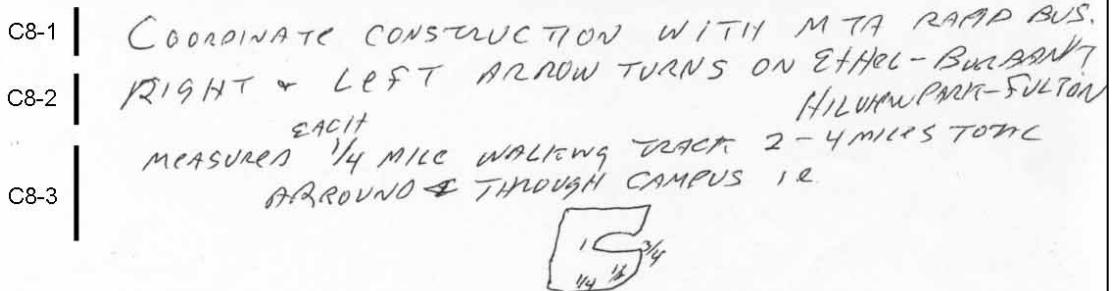 C8-1 COORDINATE CONSTRUCTION WITH MTA RAPID BUS.
C8-2 RIGHT & LEFT ARROW TURNS ON ETHEL-BURBANK
PARK-FULTON
EACH
C8-3 MEASURED 1/4 MILE WALKING TRACK 2-4 MILES TOTAL
ARROUND & THROUGH CAMPUS ie
1 3/4
1/4 1/2